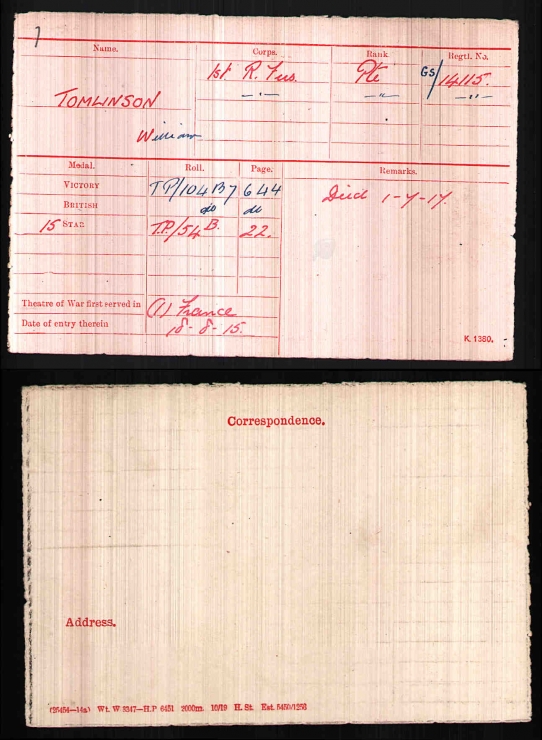 7
Name. Corps. Rank Regtl. No.
TOMLINSON 1st R. Fus. Pte GS/14115.
—"— —"— —"—
William
Medal. Roll. Page. Remarks.
VICTORY TP/104 B7 644 Died 1-7-17.
BRITISH do do
15 STAR T.P./54 B. 22.
Theatre of War first served in (1) France
Date of entry therein 18-8-15.
K. 1380.
Correspondence.
Address.
Wt. W 5347—H.P 6451 7000m. 10/19 H. St. Est. 5450/1256